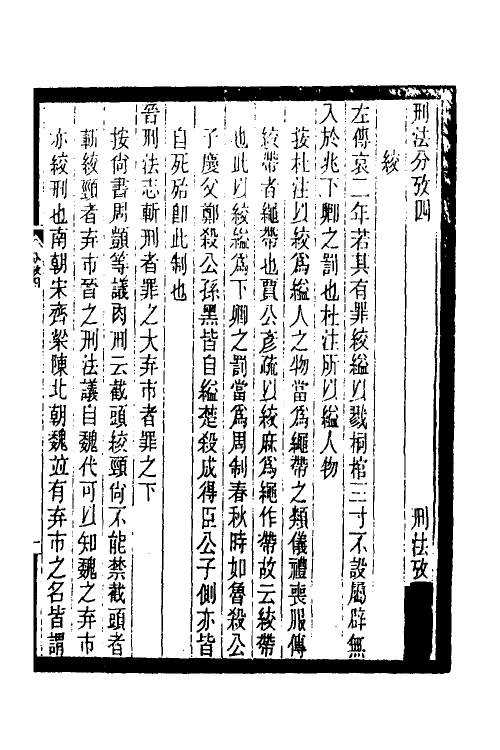 刑法分攷四　刑法攷
絞
左傳哀二年若其有罪絞縊以戮桐棺三寸不設屬辟無
入於兆下卿之罰也杜注所以縊人物
按杜注以絞爲縊人之物當爲繩帶之類儀禮喪服傳
絞帶者繩帶也賈公彥疏以絞麻爲繩作帶故云絞帶
也此以絞縊爲下卿之罰當爲周制春秋時如魯殺公
子慶父鄭殺公孫黑皆自縊楚殺成得臣公子側亦皆
自死殆卽此制也
晉刑法志斬刑者罪之大棄市者罪之下
按尙書周顗等議肉刑云截頭絞頸尙不能禁截頭者
斬絞頸者弃市晉之刑法議自魏代可以知魏之弃市
亦絞刑也南朝宋齊梁陳北朝魏竝有弃市之名皆謂